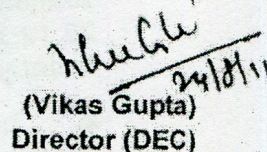 24/8/11
(Vikas Gupta)
Director (DEC)